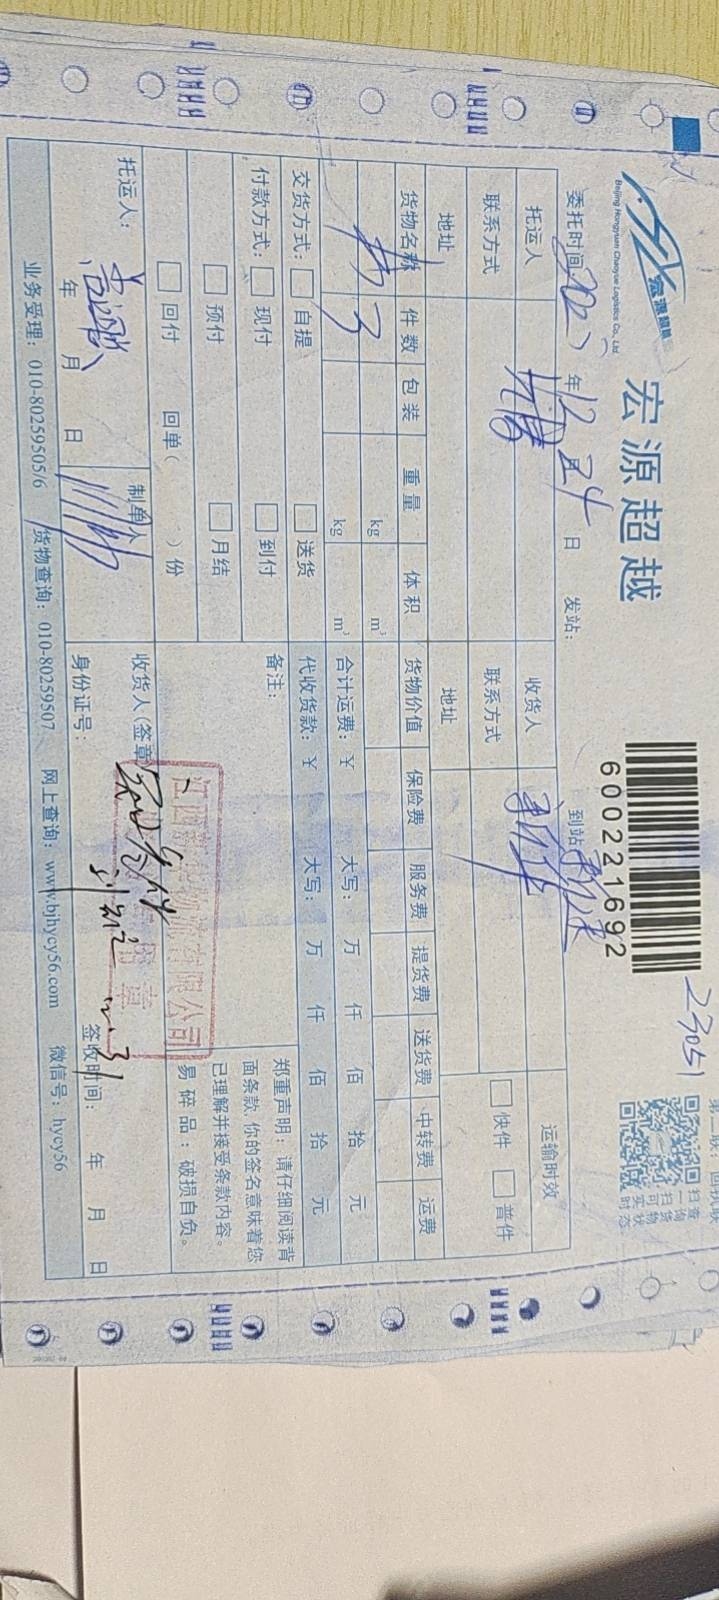 宏源超越
Beijing Hongyuan Chaoyue Logistics Co., Ltd
宏源超越
600221692
23051
第三联：回执联
扫一扫
查询货物
可实时状态
委托时间 年12月24日 发站： 到站
托运人 收货人 运输时效
联系方式 联系方式 快件 普件
地址 地址
货物名称 件数 包装 重量 体积 货物价值 保险费 服务费 提货费 送货费 中转费 运费
kg m³
3 kg m³ 合计运费：¥ 大写： 万 仟 佰 拾 元
交货方式： 自提 送货 代收货款：¥ 大写： 万 仟 佰 拾 元
付款方式： 现付 到付 备注：
预付 月结
回付 回单（ ）份
郑重声明：请仔细阅读背
面条款，你的签名意味着您
已理解并接受条款内容。
易碎品：破损自负。
托运人： 制单人 收货人(签章
年 月 日 身份证号： 签收时间： 年 月 日
江西 物流有限公司
章
业务受理：010-80259505/6 货物查询：010-80259507 网上查询：www.bjhycy56.com 微信号：hycy56